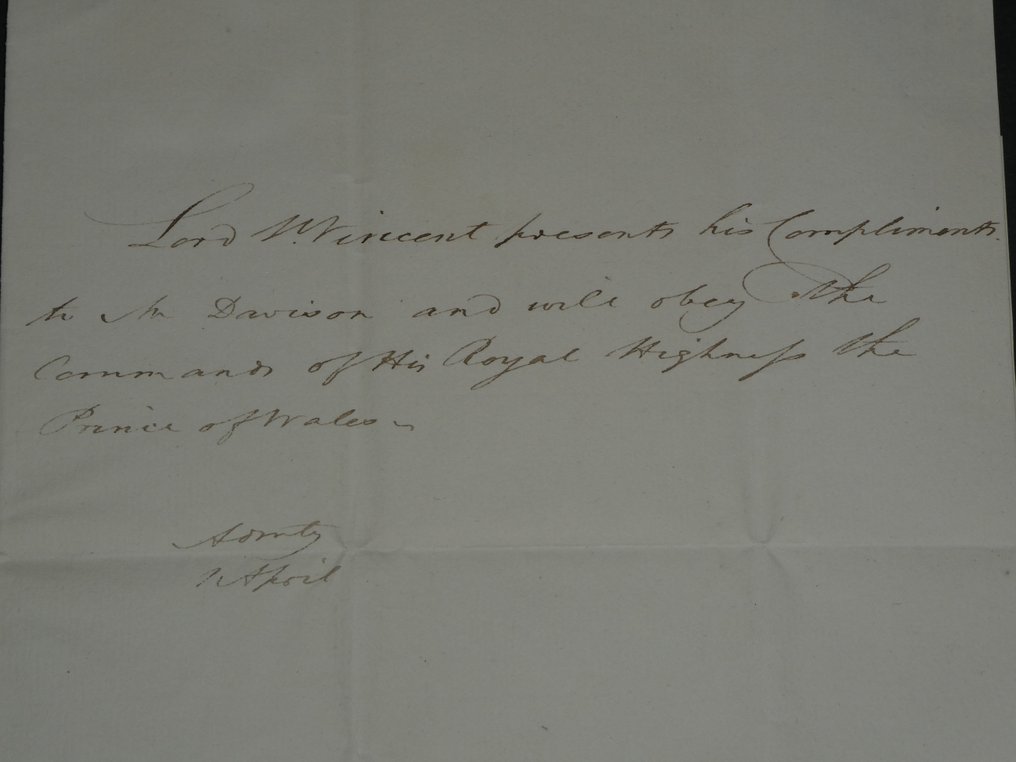 Lord St. Vincent presents his Compliments
to Mr Davison and will obey the
Commands of His Royal Highness the
Prince of Wales
Admty
1 April